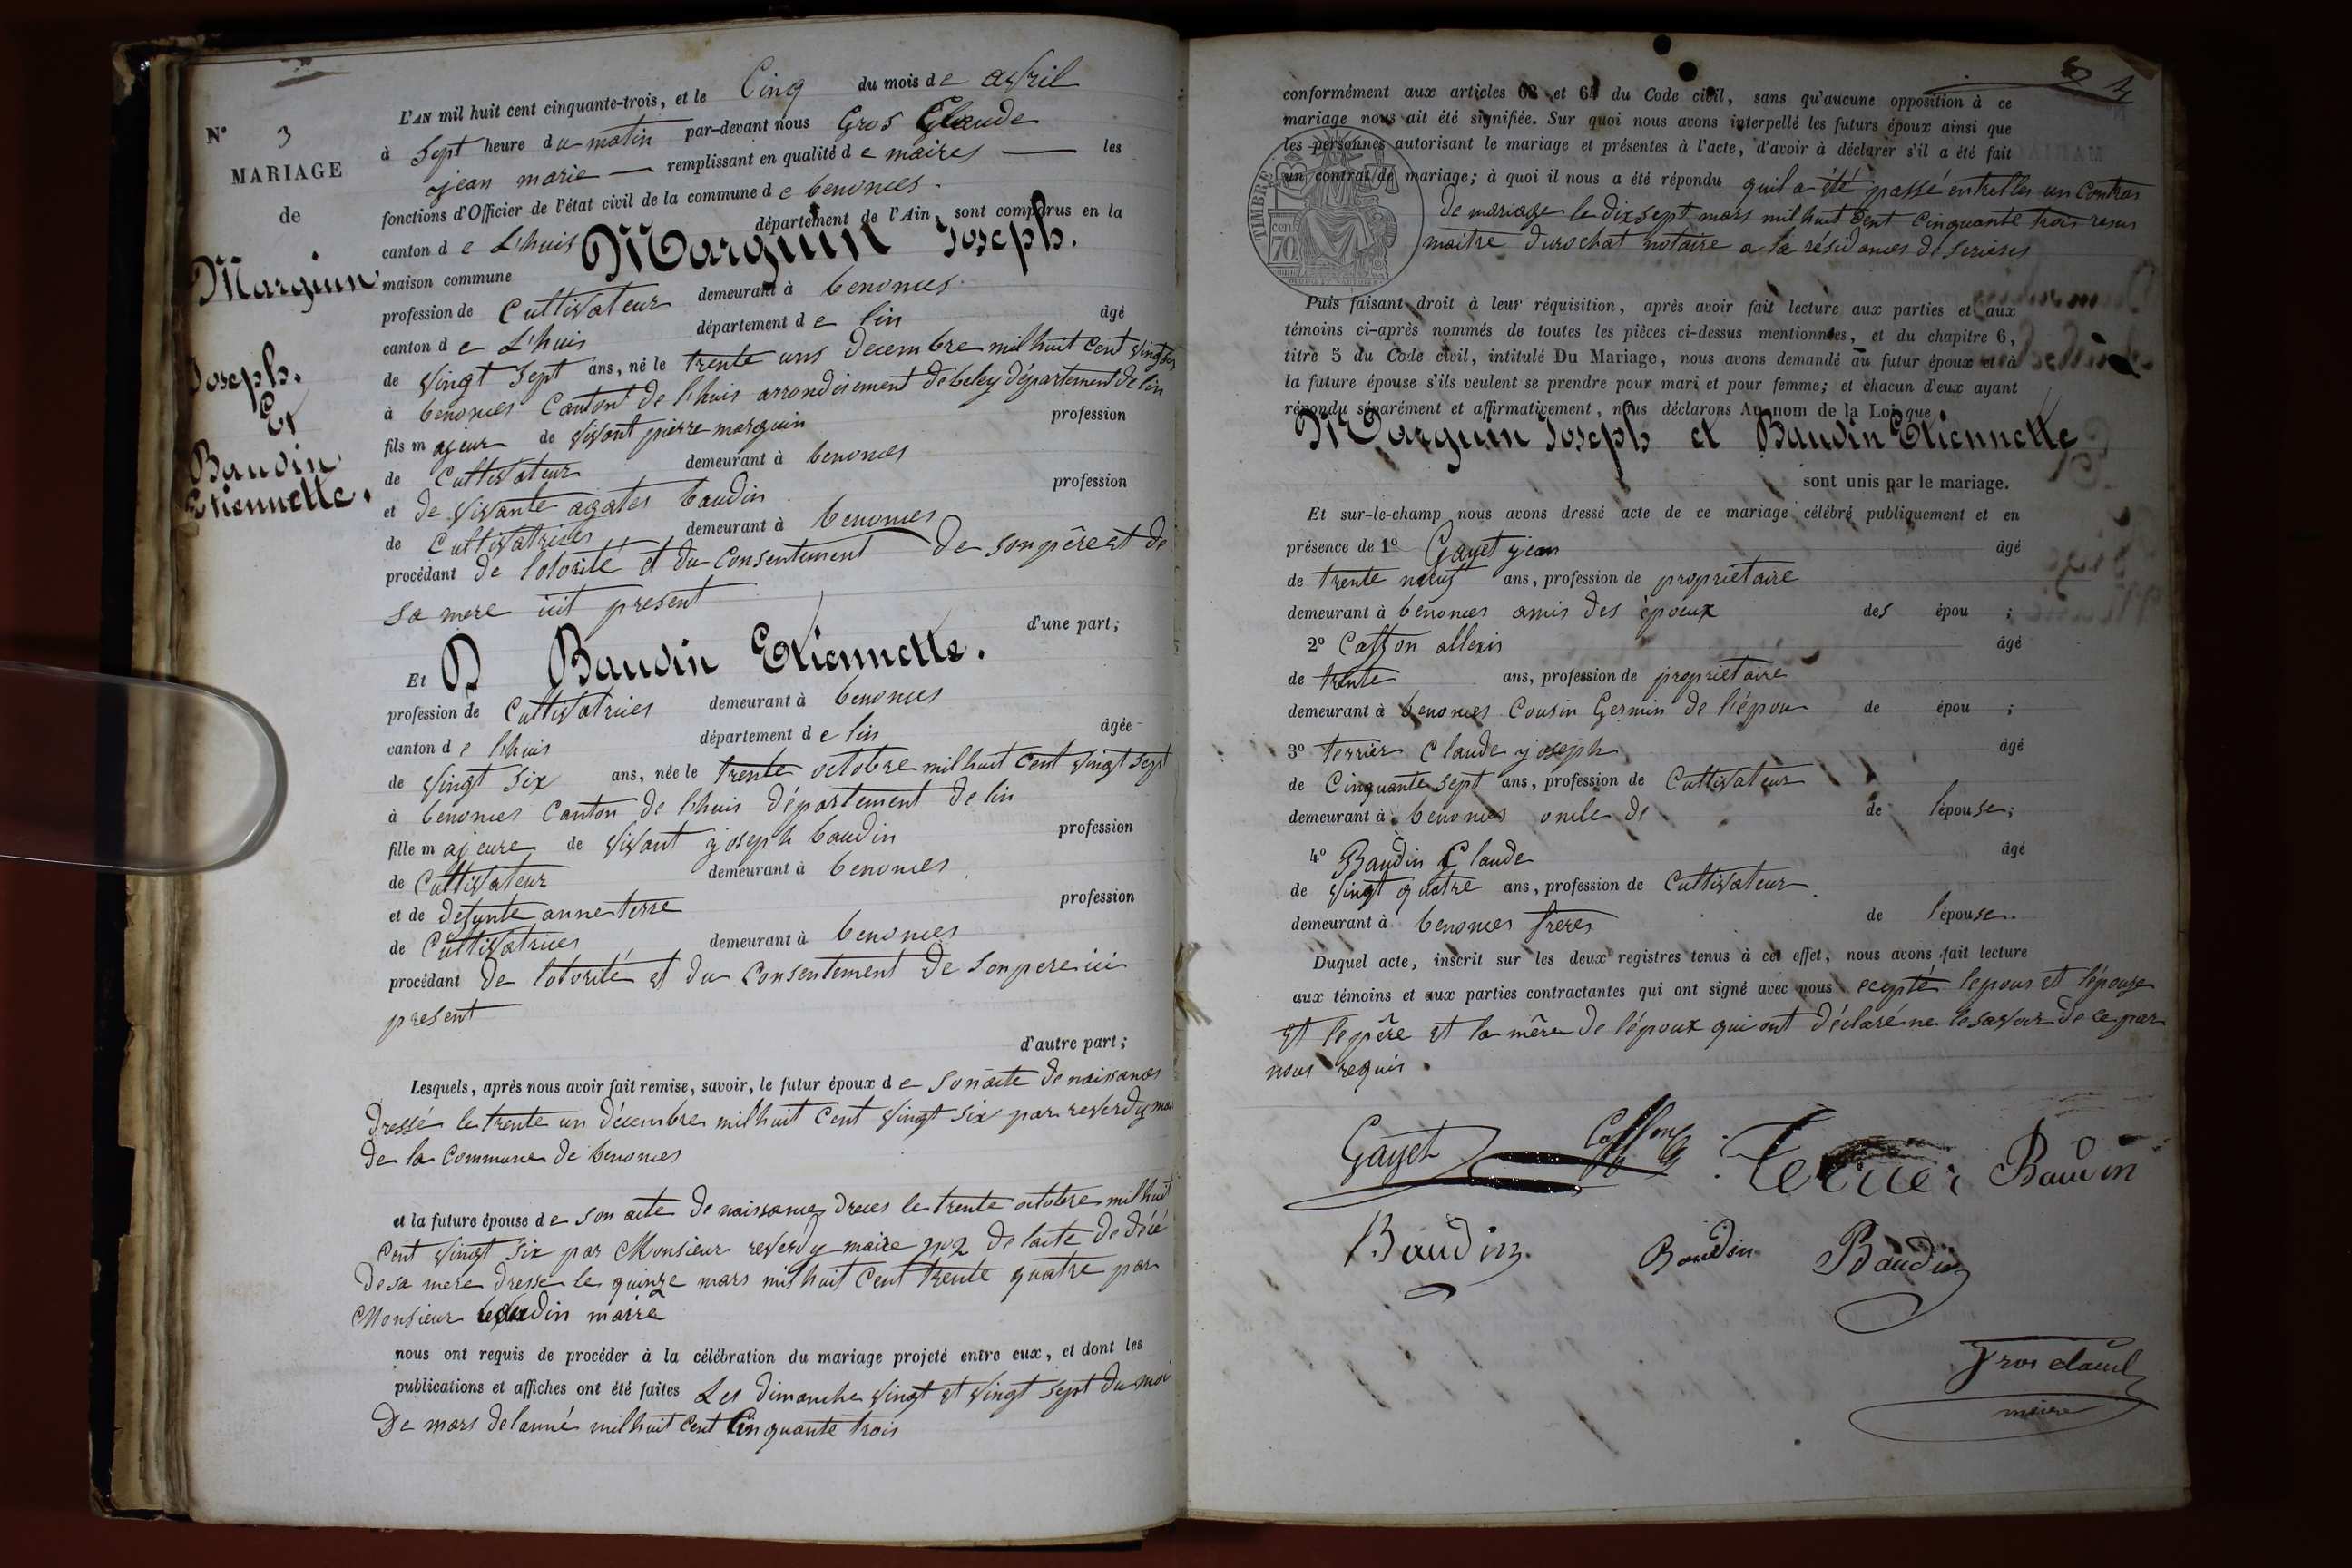 N° 3
MARIAGE
de
Marguin
Joseph.
Et
Baudin
Etiennette.
L'AN mil huit cent cinquante-trois, et le Cinq du mois de avril
à sept heure du matin par-devant nous Gros Claude
jean marie remplissant en qualité de maires les
fonctions d'Officier de l'état civil de la commune de benonces.
canton de L'huis département de l'Ain, sont comparus en la
maison commune Marguin Joseph.
profession de Cultivateur demeurant à benonces
canton de L'huis département de lin âgé
de vingt sept ans, né le trente uns decembre mil huit cent vingt six
à benonces Canton de lhuis arrondisement de beley département de lin
fils majeur de vivant pierre marguin profession
de Cultivateur demeurant à benonces
et de vivante agates baudin profession
de Cultivatrices demeurant à benonces
procédant de lotorité et du consentement de son père et de
sa mere icit present
d'une part;
Et D Baudin Etiennette.
profession de Cultivatrices demeurant à benonces
canton de lhuis département de lin âgée
de vingt six ans, née le trente octobre mil huit cent vingt sept
à benonces Canton de lhuis département de lin
fille majeure de vivant joseph baudin profession
de Cultivateur demeurant à benonces
et de defunte anne terre profession
de Cultivatrices demeurant à benonces
procédant de lotorité et du consentement de son pere ici
present
d'autre part;
Lesquels, après nous avoir fait remise, savoir, le futur époux de son acte de naissances
dressé le trente un décembre mil huit cent vingt six par reverdy mai
de la Commune de benonces
et la future épouse de son acte de naissances dreces le trente octobre mil huit
cent vingt six par Monsieur reverdy maire n° 2 de lacte de décé
de sa mere dresse le quinze mars mil huit cent trente quatre par
Monsieur baudin maire
nous ont requis de procéder à la célébration du mariage projeté entre eux, et dont les
publications et affiches ont été faites Les dimanche vingt et vingt sept du moi
De mars de lanné mil huit cent Cinquante trois
conformément aux articles 63 et 64 du Code civil, sans qu'aucune opposition à ce
mariage nous ait été signifiée. Sur quoi nous avons interpellé les futurs époux ainsi que
les personnes autorisant le mariage et présentes à l'acte, d'avoir à déclarer s'il a été fait
un contrat de mariage; à quoi il nous a été répondu quil a été passé entrelles un Contras
de mariage le dix sept mars mil huit cent cinquante trois resus
maitre durochat notaire a la résidances de serieres
TIMBRE
70 cen
Puis faisant droit à leur réquisition, après avoir fait lecture aux parties et aux
témoins ci-après nommés de toutes les pièces ci-dessus mentionnées, et du chapitre 6,
titre 5 du Code civil, intitulé Du Mariage, nous avons demandé au futur époux et à
la future épouse s'ils veulent se prendre pour mari et pour femme; et chacun d'eux ayant
répondu séparément et affirmativement, nous déclarons Au nom de la Loi que
Marguin Joseph et Baudin Etiennette
sont unis par le mariage.
Et sur-le-champ nous avons dressé acte de ce mariage célébré publiquement et en
présence de 1° Gayet jean âgé
de trente neuf ans, profession de propriétaire
demeurant à benonces amis des époux des épou ;
2° Casson allexis âgé
de trente ans, profession de propriétaire
demeurant à benonces Cousin Germin de l'épou de épou ;
3° terrier Claude joseph âgé
de Cinquante sept ans, profession de Cultivateur
demeurant à benonces oncle de de l'épouse;
4° Baudin Claude âgé
de vingt quatre ans, profession de Cultivateur
demeurant à benonces frères de l'épouse.
Duquel acte, inscrit sur les deux registres tenus à cet effet, nous avons fait lecture
aux témoins et aux parties contractantes qui ont signé avec nous ecepté lepous et lépouse
et le père et la mère de lépoux qui ont déclaré ne le savoir de ce par
nous requis.
Gayet Casson Terrier Baudin
Baudin. Baudin Baudin
Gros claud
maire